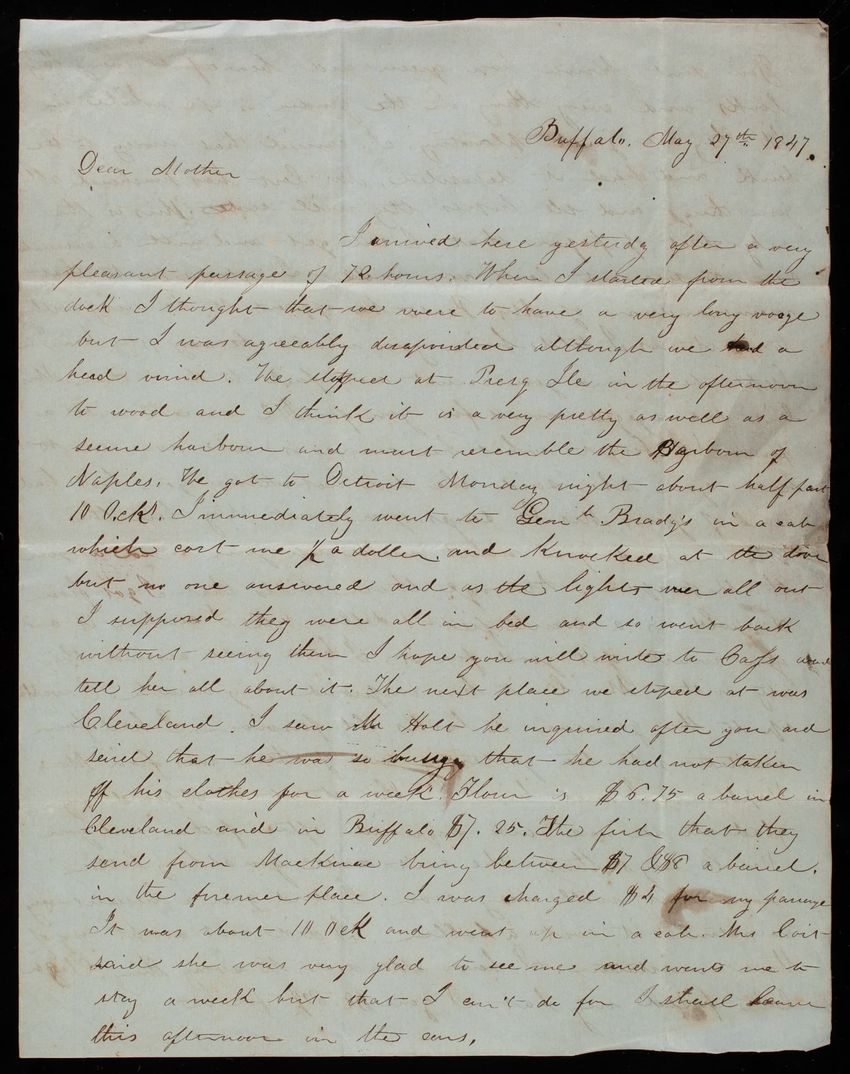 Buffalo. May 27th 1847.
Dear Mother
I arrived here yesterdy after a very
pleasant passage of 72 hours. When I started from the
dock I thought that we were to have a very long voage
but I was agreeably disapointed although we had a
head wind. We stopped at Presq Ile in the afternoon
to wood and I think it is a very pretty as well as a
secure harbour and must resemble the Harbour of
Naples. We got to Detroit Monday night about half past
10 Ock. I immediately went to Genl Brady's in a cab
which cost me a dollar. and knocked at the door
but no one answered and as the lights were all out
I supposed they were all in bed and so went back
without seeing them I hope you will write to Cass and
tell her all about it. The next place we stoped at was
Cleveland. I saw Mr Holt he inquired after you and
said that he was so busy that he had not taken
off his clothes for a week. Flour is $6.75 a barrel in
Cleveland and in Buffalo $7.25. The fish that they
send from Mackinac bring between $7 & $8 a barrel.
in the former place. I was charged $4 for my passage
It was about 10 Ock and went up in a cab. Mrs Coit
said she was very glad to see me and wants me to
stay a week but that I can't do for I shall leave
this afternoon in the cars.